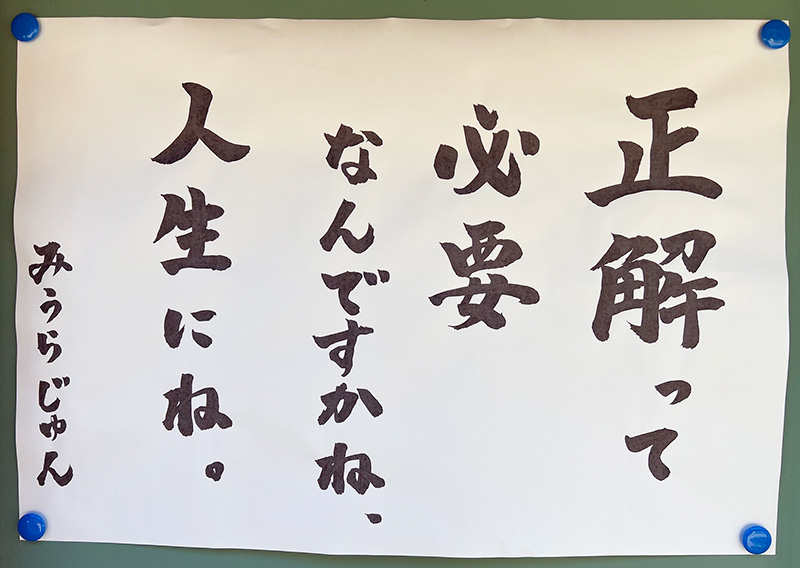 正解って
必要
なんですかね、
人生にね。
みうらじゅん